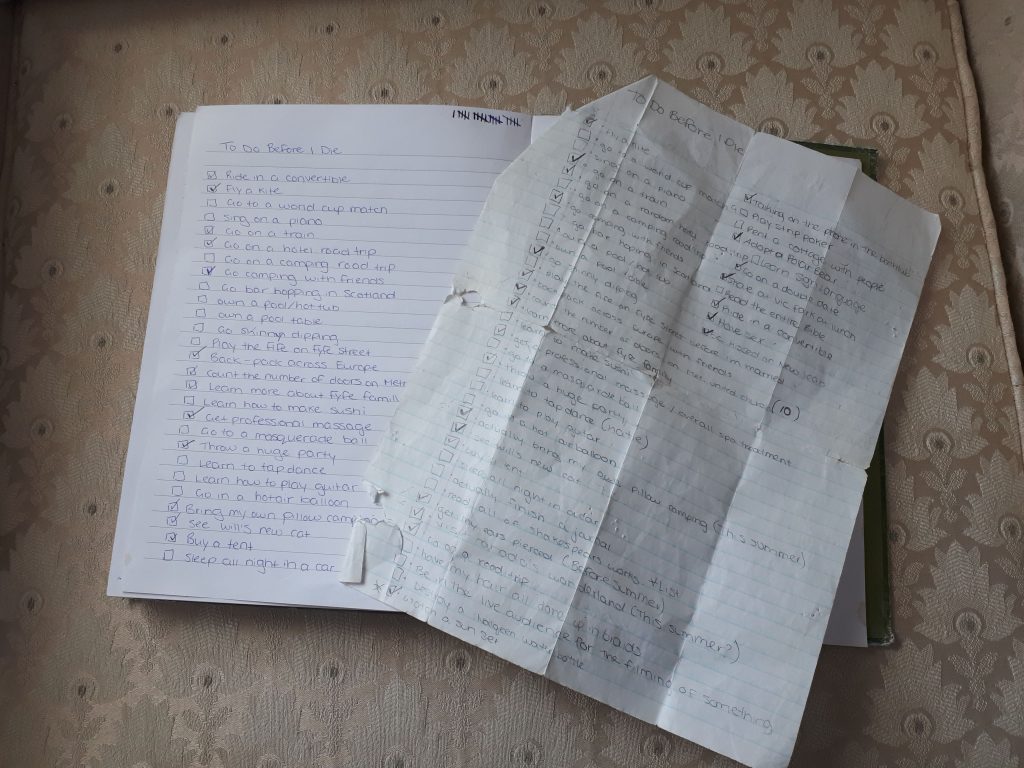 To Do Before I Die
Ride in a convertible
Fly a kite
Go to a world cup match
Sing on a piano
Go on a train
Go on a hotel road trip
Go on a camping road trip
Go camping with friends
Go bar hopping in Scotland
own a pool/hot tub
own a pool table
Go skinny dipping
Play the Fife on Fyfe Street
Back-pack across Europe
Count the number of doors on Metr
Learn more about Fyfe famil
Learn how to make sushi
Get professional massage
Go to a masquerade ball
Throw a huge party
Learn to tap dance
Learn how to play guitar
Go in a hot air balloon
Bring my own pillow camping
See Will's new cat
Buy a tent
Sleep all night in a car
To Do Before I Die
fly a kite
go to a world cup match
sing on a piano
go on a train
go on a random hotel road
go on a camping road
go camping with friends
go bar hoping in Scotland
own a pool
the fife on Fife Street before I'm married
back pack across europe with friends
the number of doors on met. united church (10)
more about fyfe family
to make sushi
professional massage / overall spa treatment
a masquerade ball
throw a huge party
learn to tap dance (native)
to play guitar
go in a hot air balloon
actually bring my own pillow camping (this summer)
see will's new cat
buy a tent
sleep all night in a car
actually finish a journal
read all of shakespear's works. *List
get my ears pierced (Before Summer)
wonderland (This summer?)
go on a road trip
have my hair all done up in braids
Be in the live audience for the filming of something
Destroy a nalgeen water bottle
a sun set
Talking on the phone in the bathtub
Play strip poker
Rent a cottage with people
Adopt a Polar Bear
Learn sign language
Go on a double date
Skate at Vic Park on lunch
Read the entire Bible
Ride in a convertible
Have sex
Be kissed on New Years